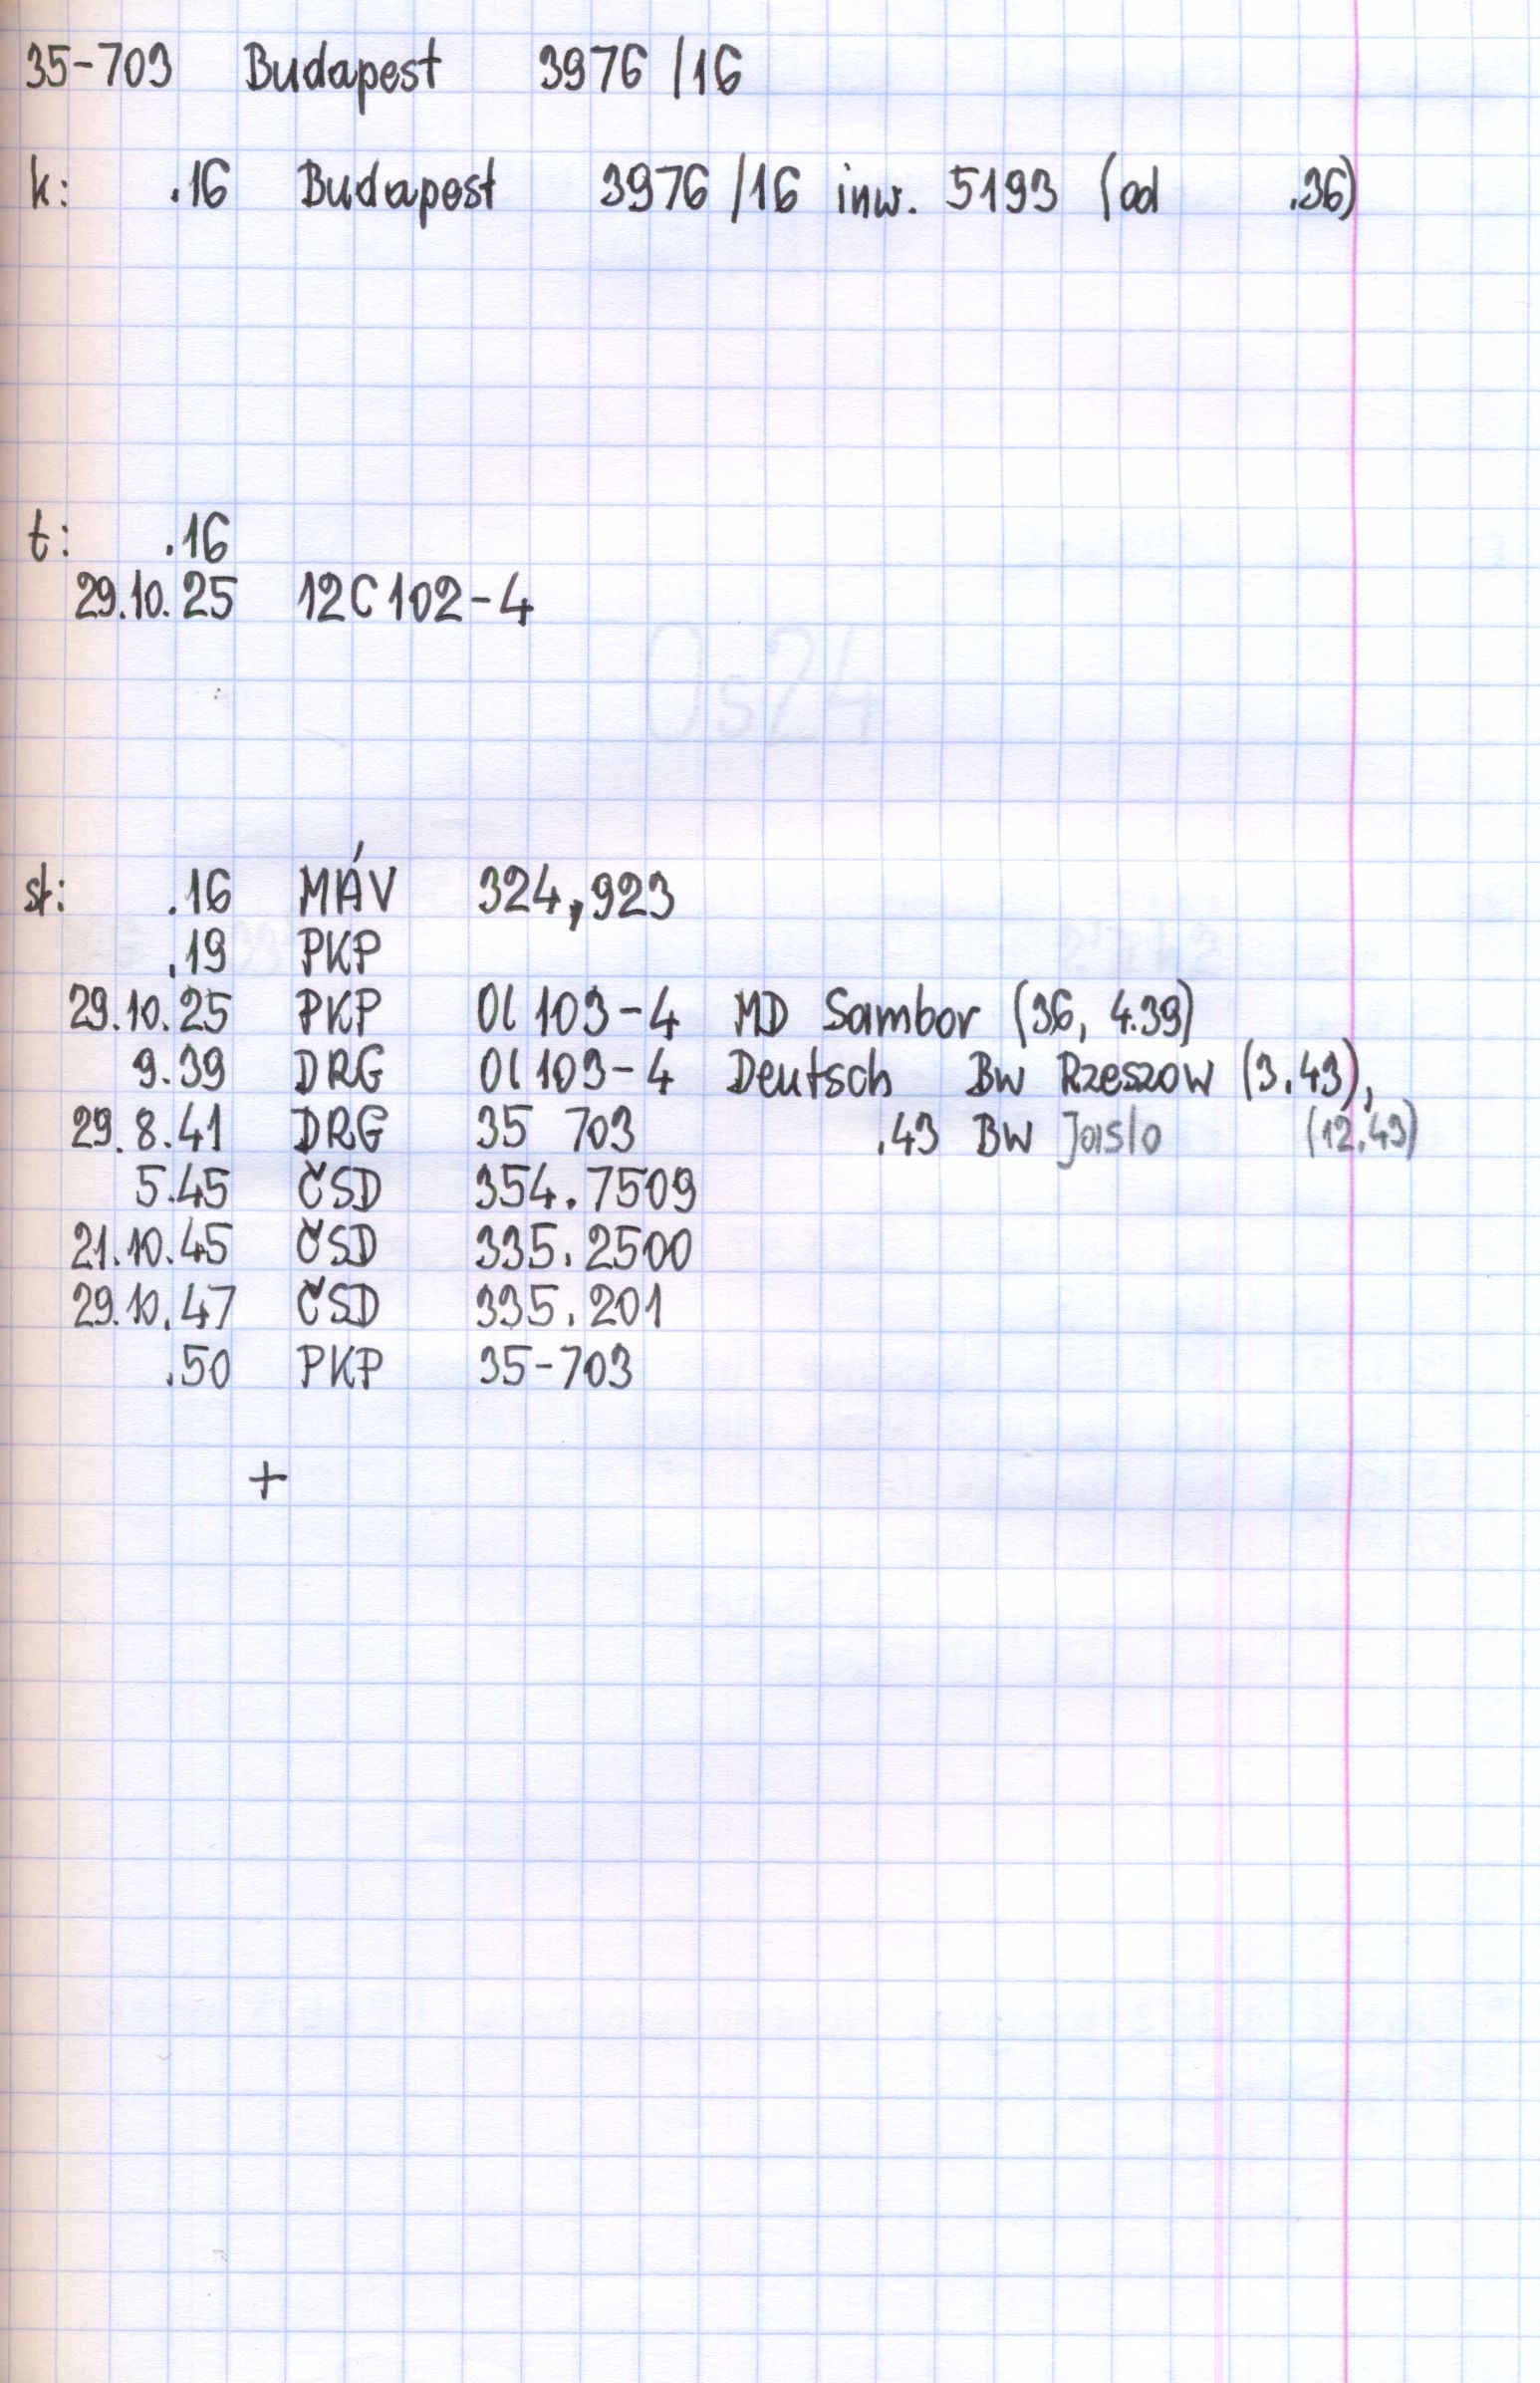 35-703 Budapest 3976/16
k: .16 Budapest 3976/16 inw. 5193 (od .36)
t: .16
29.10.25 12C102-4
Os24
st: .16 MÁV 324,923
.19 PKP
29.10.25 PKP Ol103-4 MD Sambor (36, 4.39)
9.39 DRG Ol103-4 Deutsch Bw Rzeszow (3.43),
29.8.41 DRG 35 703 .43 Bw Jaslo (12.43)
5.45 ČSD 354.7509
21.10.45 ČSD 335.2500
29.10.47 ČSD 335.201
.50 PKP 35-703
+